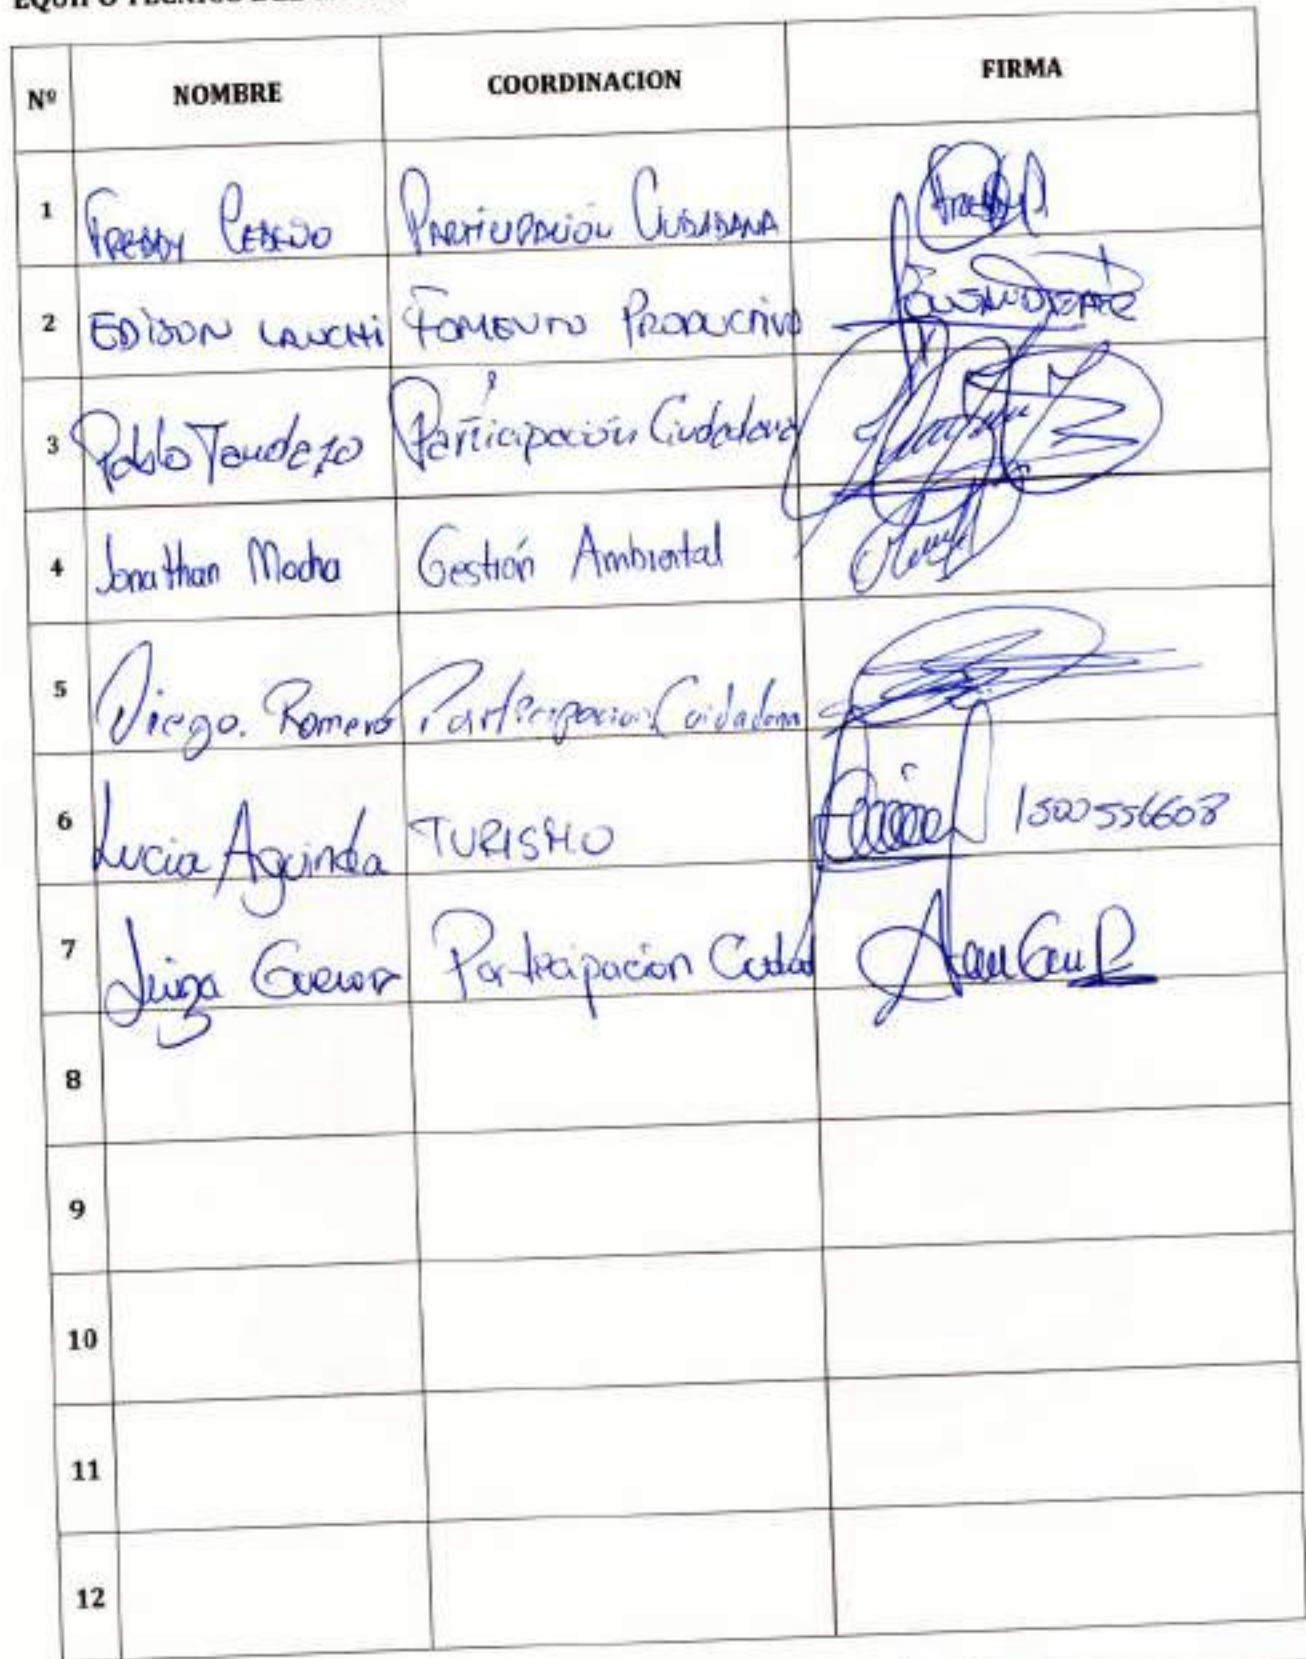 EQUIPO TÉCNICO DEL
Nº NOMBRE COORDINACION FIRMA
1 FREDDY CEDEÑO PARTICIPACIÓN CIUDADANA
2 EDISON LANCHI FOMENTO PRODUCTIVO
3 Pablo Tandazo Participación Ciudadana
4 Jonathan Mocha Gestión Ambiental
5 Diego. Romero Participacion Ciudadana
6 Lucia Aguinda TURISMO 1500556608
7 Participacion Ciudad
8
9
10
11
12